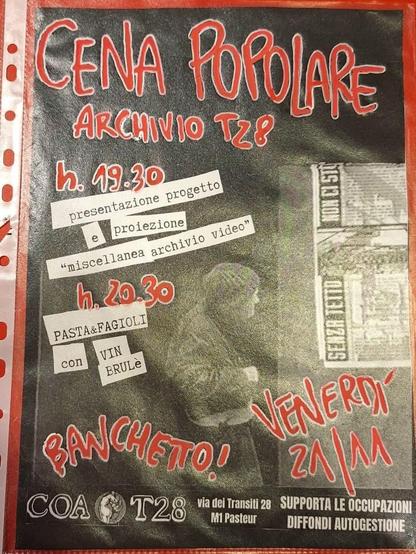 CENA POPOLARE
ARCHIVIO T28
h. 19.30
presentazione progetto
e proiezione
"miscellanea archivio video"
h. 20.30
PASTA&FAGIOLI
con VIN
BRULè
NON CI ST
SENZA TETTO
VENERDÌ
21/11
BANCHETTO!
COA T28
via dei Transiti 28
M1 Pasteur
SUPPORTA LE OCCUPAZIONI
DIFFONDI AUTOGESTIONE